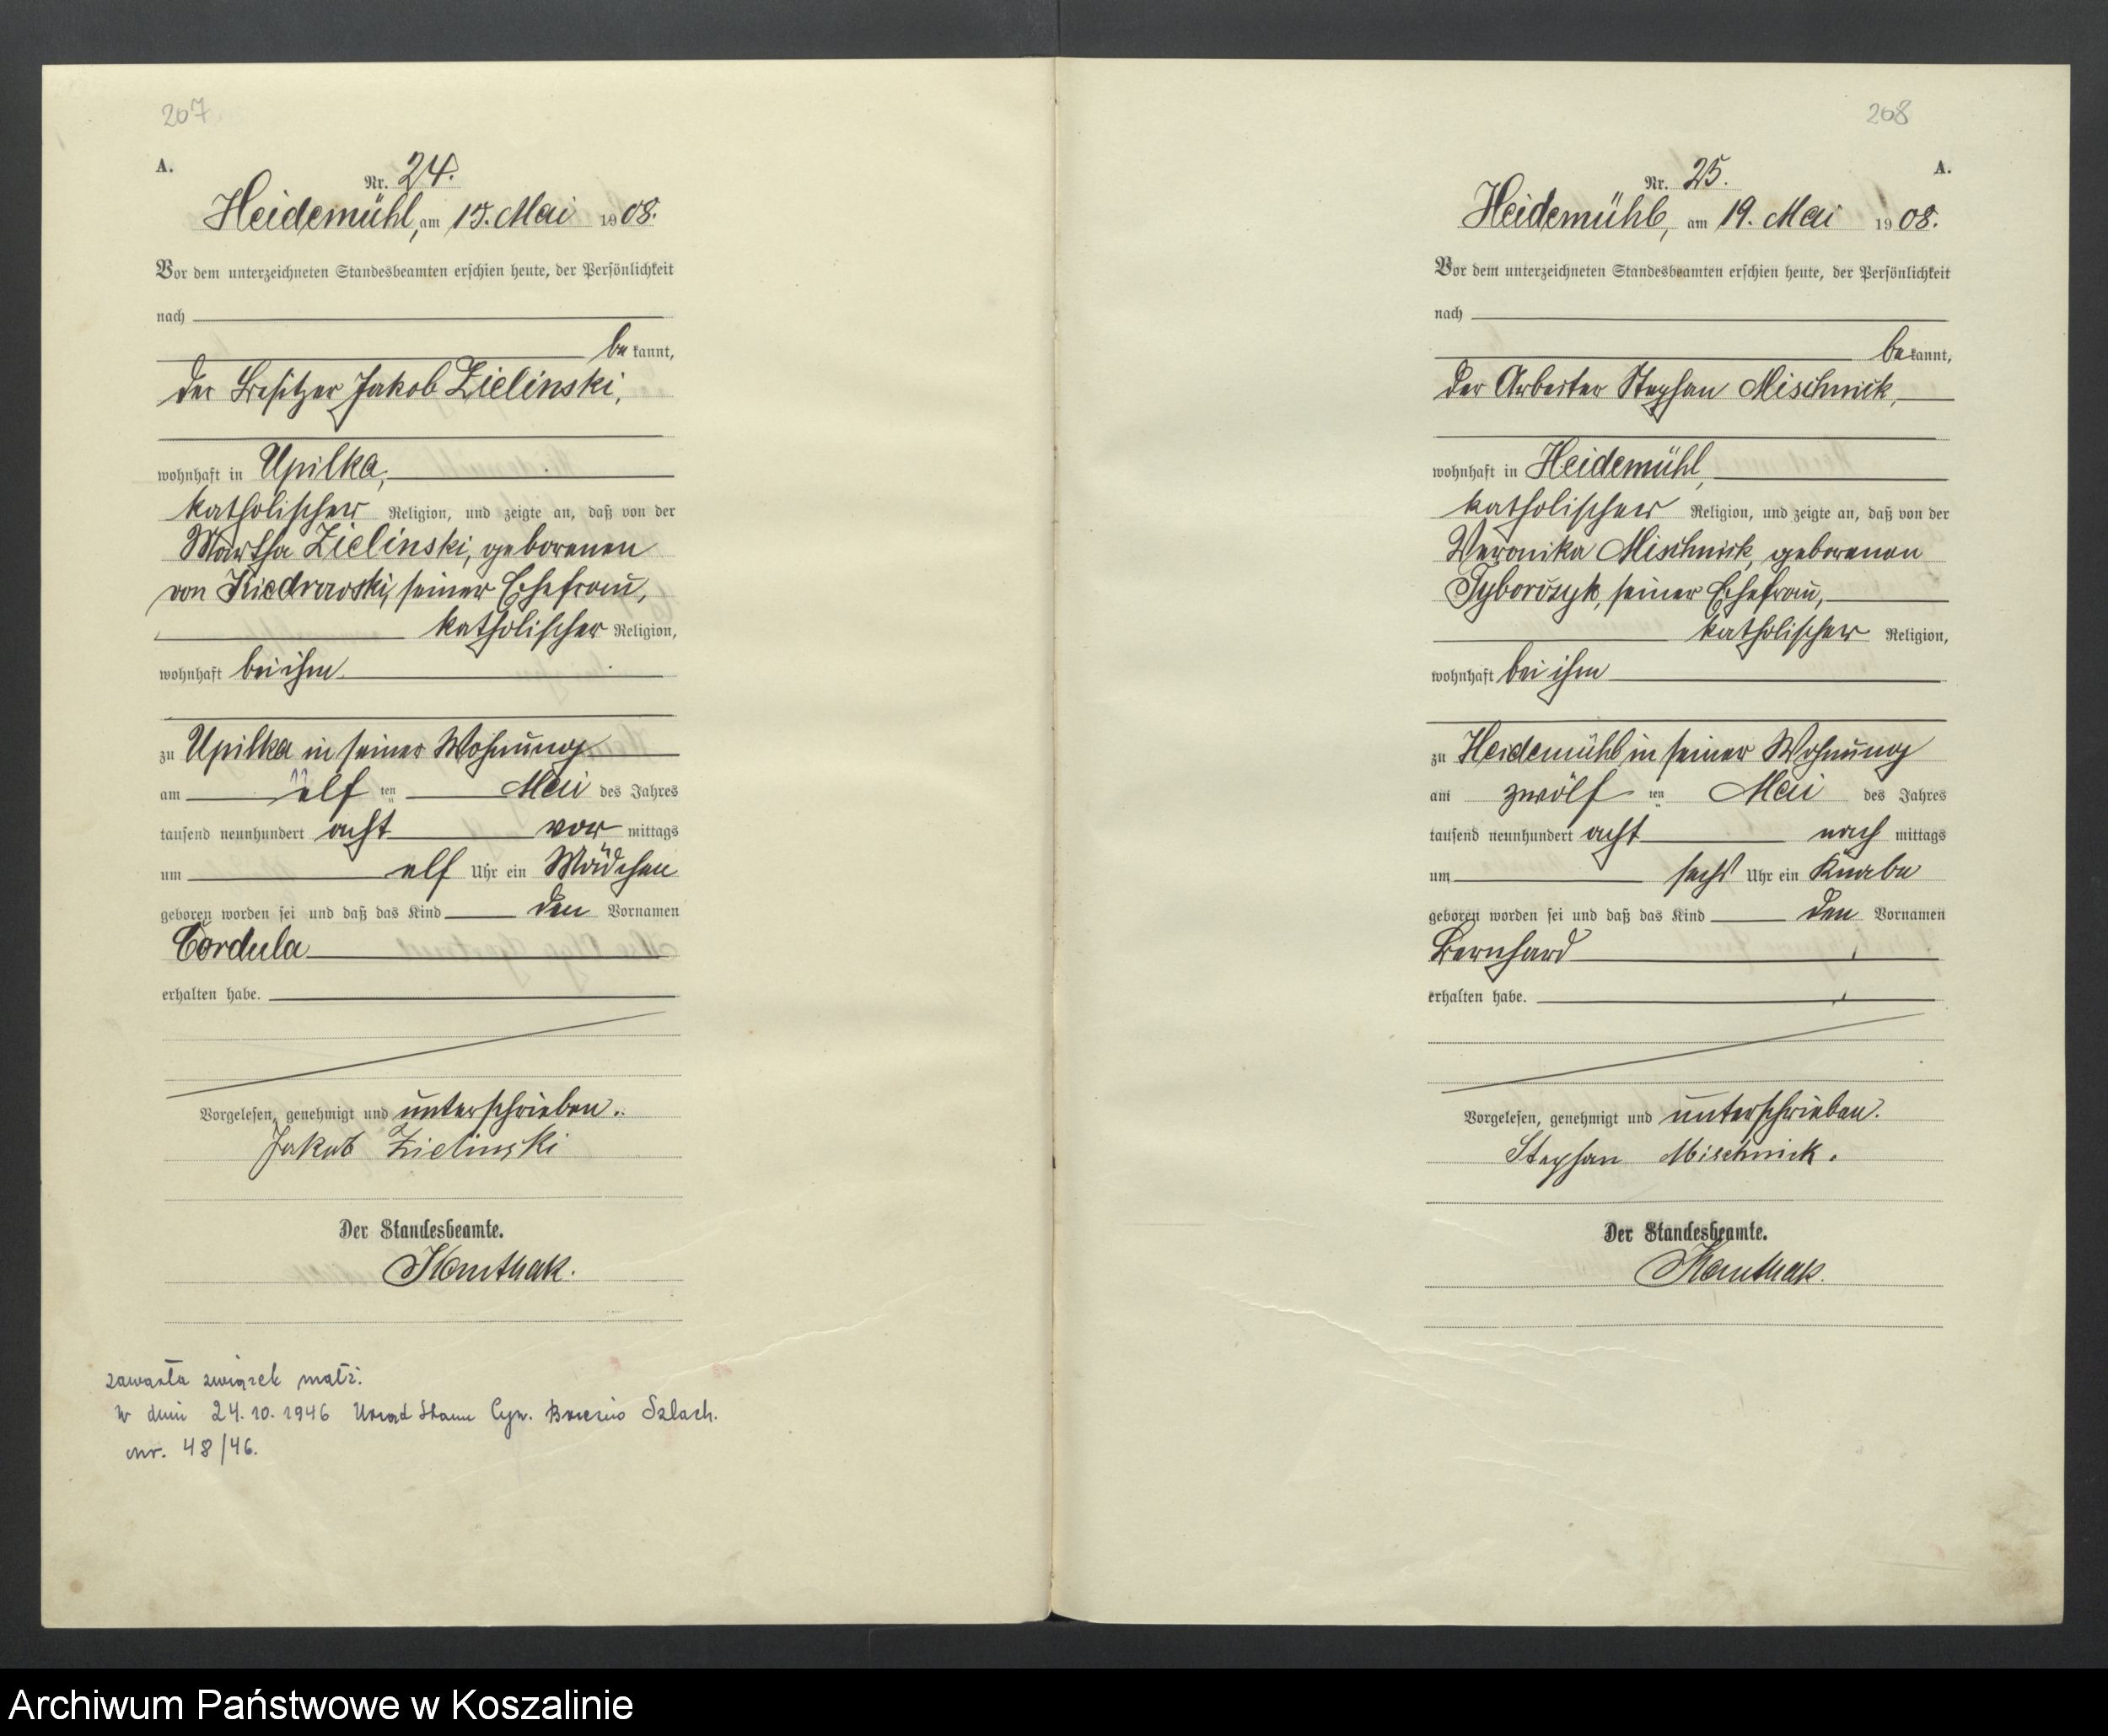 207
A.
Nr. 24.
Heidemühl, am 15. Mai 1908.
Vor dem unterzeichneten Standesbeamten erschien heute, der Persönlichkeit
nach
be kannt,
der Besitzer Jakob Zielinski,
wohnhaft in Upilka,
katholischer Religion, und zeigte an, daß von der
Martha Zielinski, geborenen
von Kiedrowski, seiner Ehefrau,
katholischer Religion,
wohnhaft bei ihm
zu Upilka in seiner Wohnung
am elf ten Mai des Jahres
11
tausend neunhundert acht vor mittags
um elf Uhr ein Mädchen
geboren worden sei und daß das Kind den Vornamen
Cordula
erhalten habe.
Vorgelesen, genehmigt und unterschrieben.
Jakob Zielinski
Der Standesbeamte.
zawarła związek małż.
w dniu 24.10.1946 Urząd Stanu Cyw. Brzeźno Szlach.
nr. 48/46.
208
A.
Nr. 25.
Heidemühl, am 19. Mai 1908.
Vor dem unterzeichneten Standesbeamten erschien heute, der Persönlichkeit
nach
be kannt,
der Arbeiter Stephan Mischnick,
wohnhaft in Heidemühl,
katholischer Religion, und zeigte an, daß von der
Veronika Mischnick, geborenen
seiner Ehefrau,
katholischer Religion,
wohnhaft bei ihm
zu Heidemühl in seiner Wohnung
am zwölf ten Mai des Jahres
tausend neunhundert acht nach mittags
um sechs Uhr ein Knabe
geboren worden sei und daß das Kind den Vornamen
Bernhard
erhalten habe.
Vorgelesen, genehmigt und unterschrieben.
Stephan Mischnick.
Der Standesbeamte.
Archiwum Państwowe w Koszalinie